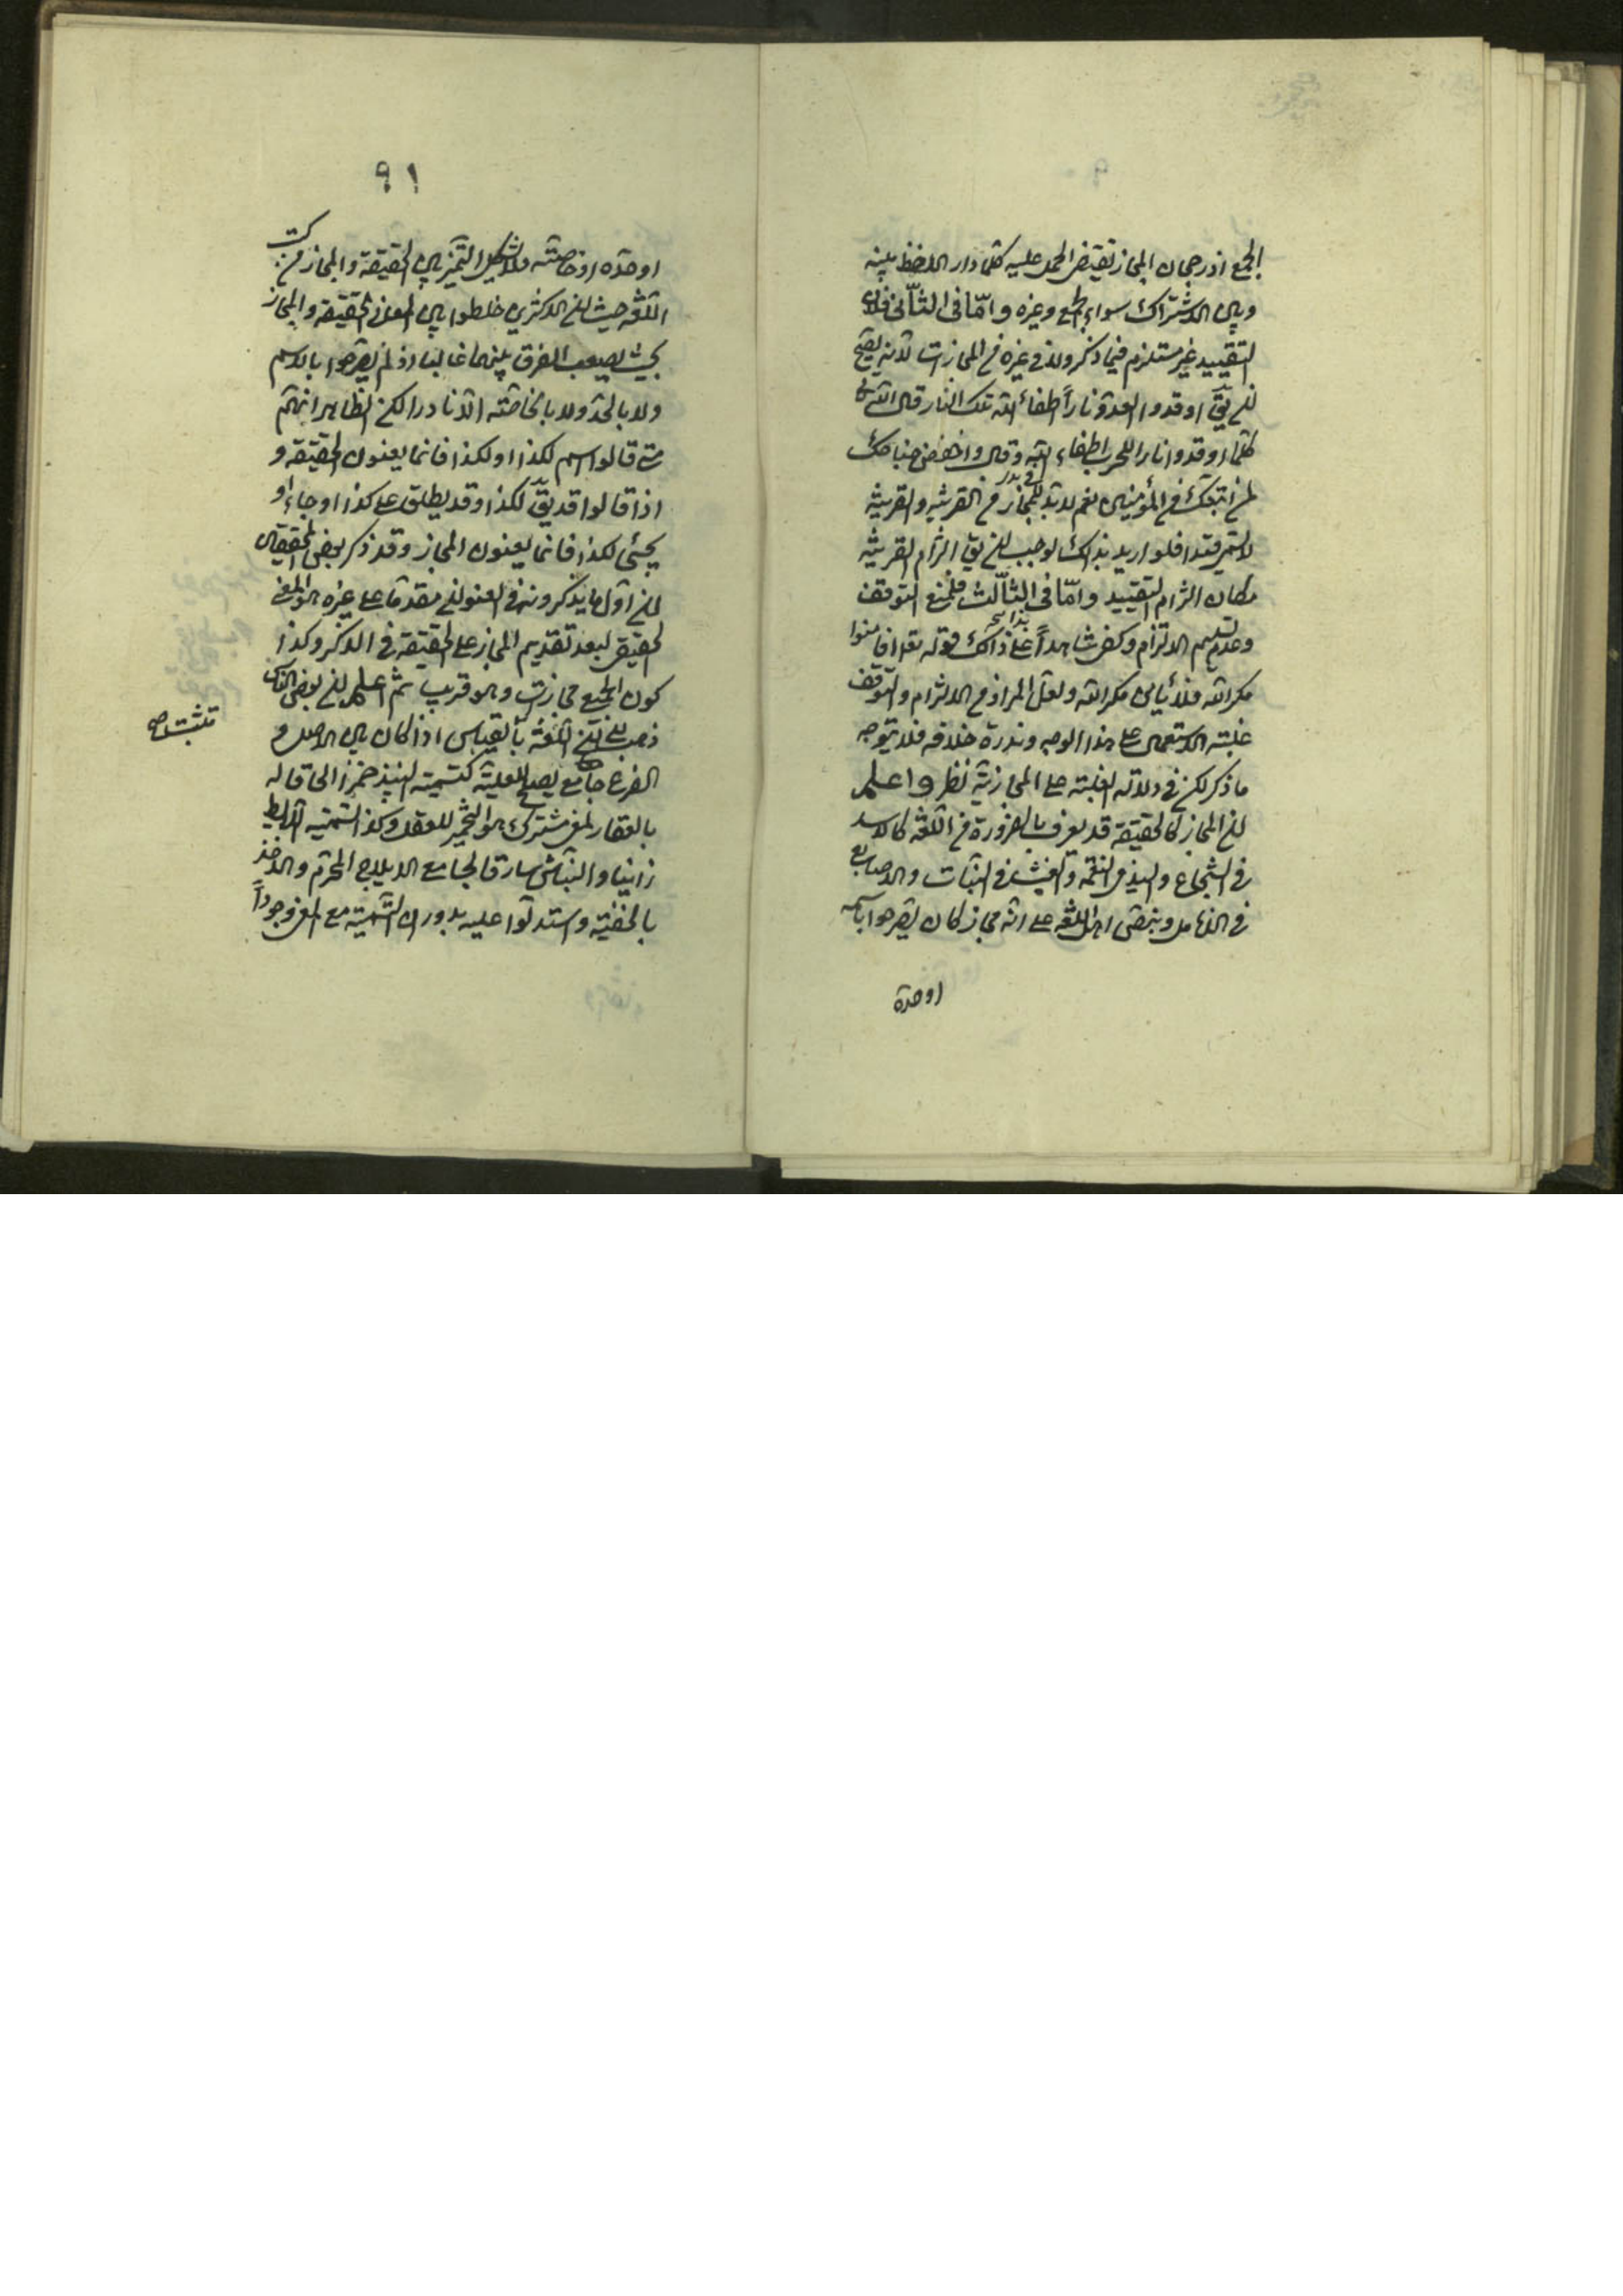 الجمع اذ رجحان المجاز تقيض الحمل عليه كلما دار اللفظ بينه
وبين الاشتراك سواء الجمع وغيره وامّا فى الثانى فلان
التقييد غير مستلزم فيما ذكر ولا فى غيره من المجازات لانه يصح
ان يقّ اوقدوا العدوّ ناراً اطفاء الله تلك النار قال الله تعالى
كلما اوقدوا نارا للحرب اطفاء الله وقال واخفض جناحك
لمن اتبعك من المؤمنين نعم لابدّ للمجاز من القرينه والقرينه
لا فلو اريد بذلك لوجب ان يقّ الزام القرينه
مكان الزام التقييد وامّا فى الثالث فلمنع التوقف
وعدم تسليم الالتزام وكفى شاهداً على ذلك قوله تعالى افامنوا
مكر الله فلا يأمن مكر الله ولعل المراد من الالتزام والتوقف
غلبة الاستعمال على هذا الوجه وندرة خلافه فلا يتوجه
ما ذكر لكن فى دلالة الغلبة على المجازية نظر واعلم
ان المجاز كالحقيقة قد يعرف بالضرورة من اللغة كالاسد
فى الشجاع واليد فى النعمة والغيث فى النبات والاصابع
فى الانامل وبنص اهل اللغة على انه مجاز كان يصرحوا باسمه
اوحدة
٩١
اوحده او خاصته ولا شكل التميز بين الحقيقة والمجاز من كتب
اللغه حيث ان الاكثرين خلطوا بين المعانى الحقيقة والمجاز
بحيث يصعب الفرق بينهما غالبا اذ لم يصرحوا بالاسم
ولا بالحد ولا بالخاصته الّا نادرا لكن الظاهر انهم
متى قالوا اسم لكذا او لكذا فانما يعنون الحقيقة و
اذا قالوا قد يقّ لكذا وقد يطلق على كذا او جاء او
يجئى لكذا فانما يعنون المجاز وقد ذكر بعض المحققين
ان اوّل ما يذكرونه فى العنوان مقدما على غيره هو المعنى
الحقيقى لبعد تقديم المجاز على الحقيقة فى الذكر وكذا
كون الجميع مجازات وهو قريب ثم اعلم ان بعض الناس
ذهب الى اللغة بالقياس اذا كان بين الاصل و
الفرع جامع يصلح للعلية كتسمية النبيذ خمرا الحاقا له
بالعقار لمعنى مشترك هو التخمير للعقل وكذا تسمية اللايط
زانيا والنباش سارقا لجامع الايلاج المحرّم والاخذ
بالخفية واستدلّوا عليه بدوران التسمية مع المعنى وجوداً